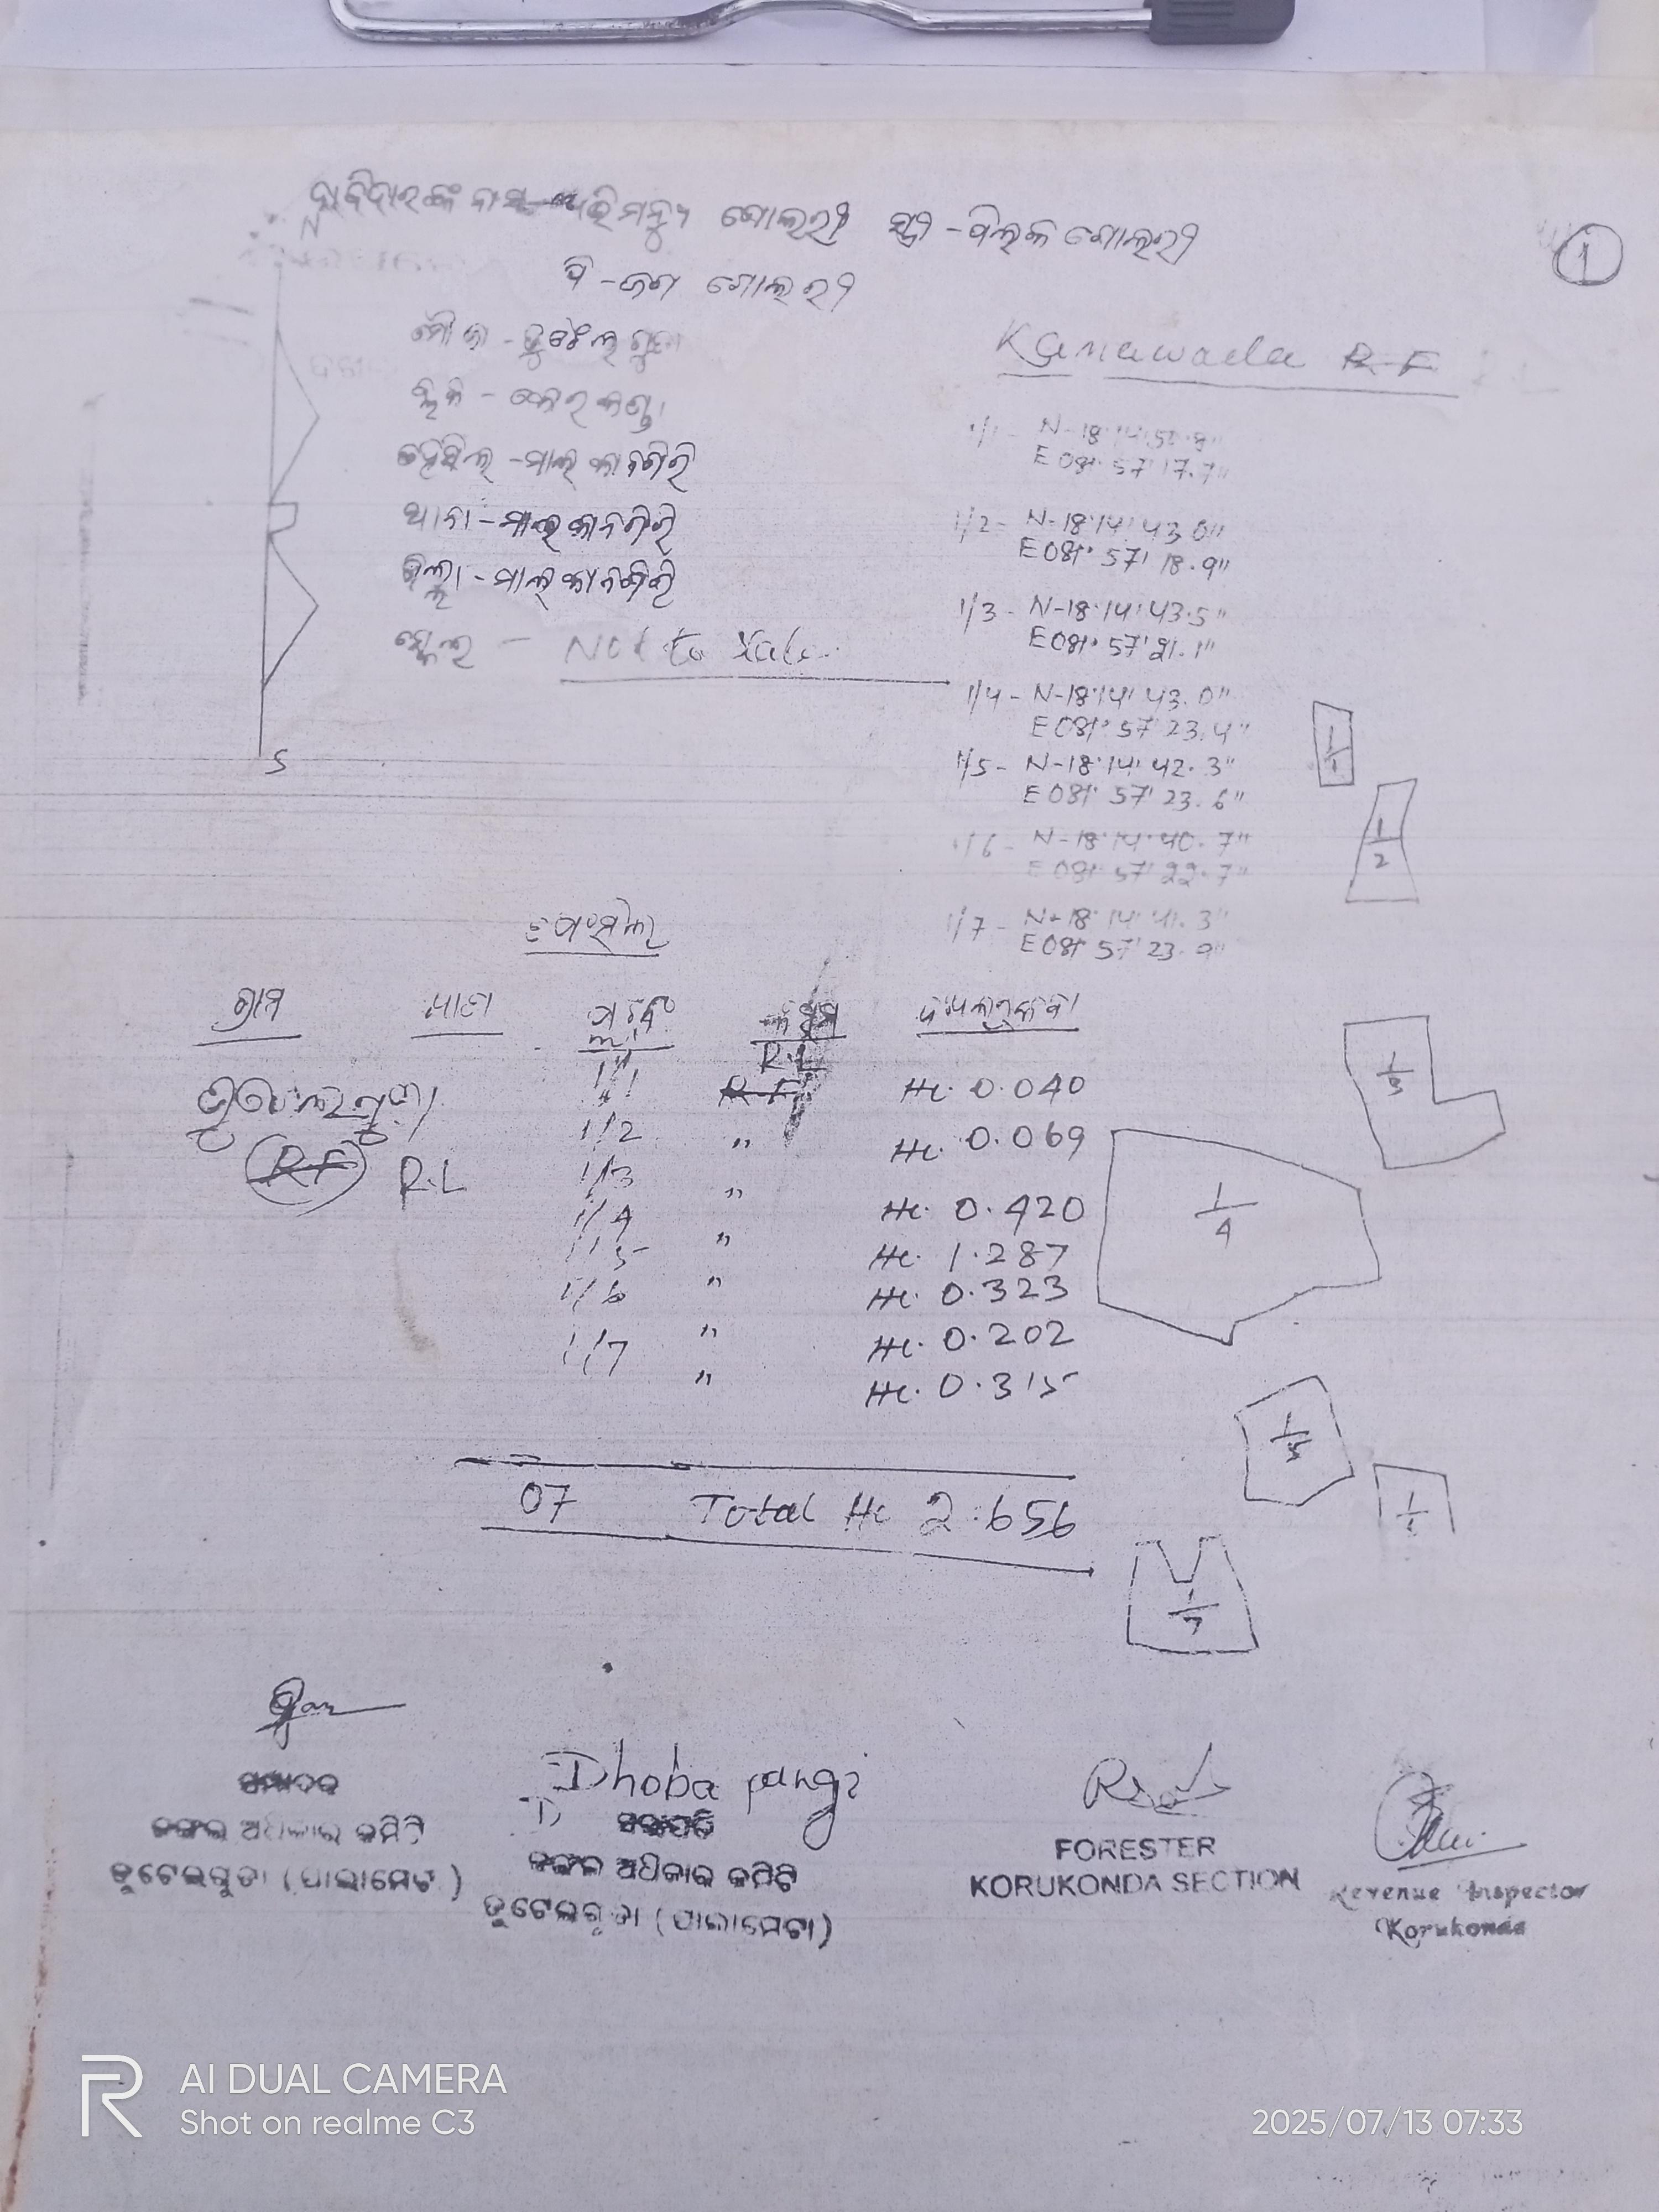 ଦାବିଦାରଙ୍କ ନାମ - ଅଭିମନ୍ୟୁ ଗୋଲାରୀ ସ୍ତ୍ରୀ - ତିଳକ ଗୋଲାରୀ
ପି - ଜଗ ଗୋଲାରୀ
1
N
ମୌଜା -
ବ୍ଲକ - କୋରକଣ୍ଡା
ତହସିଲ - ମାଲ୍ କାନଗିରି
ଥାନା - ମାଲ୍ କାନଗିରି
ଜିଲ୍ଲା - ମାଲ୍ କାନଗିରି
ସ୍କେଲ - Not to Scale
S
Kanawada R F
1/1 - N-18°14'50.8"
E 081° 57' 17.7"
1/2 - N-18°14' 43.0"
E 081° 57' 18.9"
1/3 - N-18°14' 43.5"
E 081° 57' 21.1"
1/4 - N-18°14' 43.0"
E 081° 57' 23.4"
1/5 - N-18°14' 42.3"
E 081° 57' 23.6"
1/6 - N-18°14' 40.7"
E 081° 57' 22.7"
1/7 - N-18°14' 41.3"
E 081° 57' 23.9"
1/1
1/2
1/3
1/4
1/5
1/7
ଗ୍ରାମ
R.L
1/1 R F Hc. 0.040
1/2 " Hc. 0.069
RF R.L 1/3 "
1/4 " Hc. 0.420
1/5 Hc. 1.287
1/6 " Hc. 0.323
1/7 " Hc. 0.202
" Hc. 0.315
07 Total Hc 2.656
Dhoba pangi
ସମ୍ପାଦକ
ଜଙ୍ଗଲ ଅଧିକାର କମିଟି
ଡୁଟେଲଗୁଡା (ପାଲାମେଟା)
ସଭାପତି
ଜଙ୍ଗଲ ଅଧିକାର କମିଟି
ଡୁଟେଲଗୁଡା (ପାଲାମେଟା)
FORESTER
KORUKONDA SECTION
Revenue Inspector
Korukonda
R
AI DUAL CAMERA
Shot on realme C3
2025/07/13 07:33